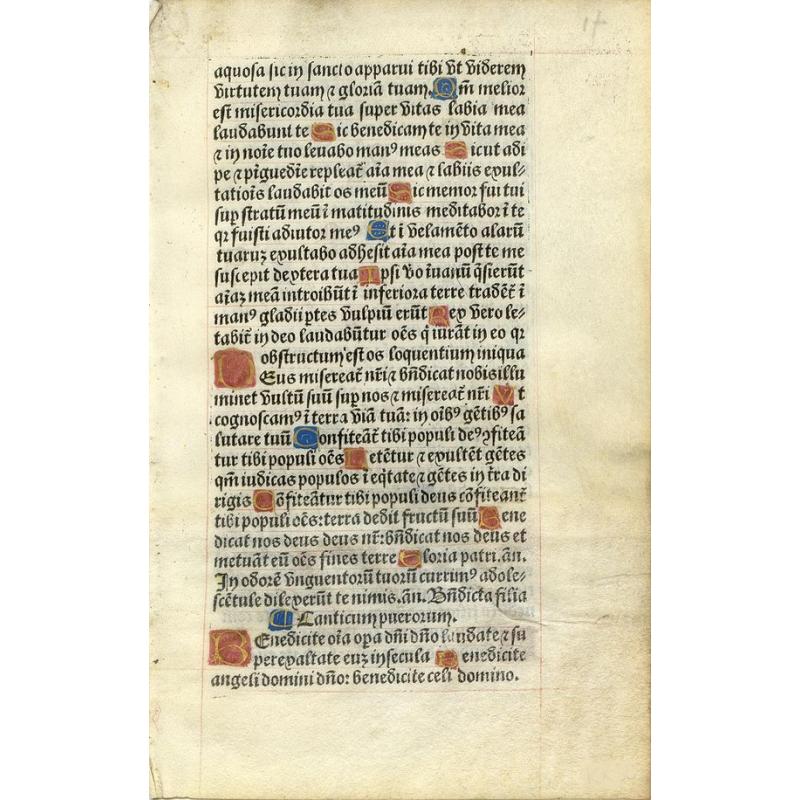 17
aquosa sic in sancto apparui tibi vt viderem
virtutem tuam ⁊ gloriã tuam. Qm̃ melior
est misericordia tua super vitas labia mea
laudabunt te Sic benedicam te in vita mea
⁊ in noĩe tuo leuabo manꝰ meas Sicut adi
pe ⁊ pĩguedĩe repleat̃ aĩa mea ⁊ labiis exul⸗
tatiõis laudabit os meũ Sic memor fui tui
suꝑ stratũ meũ ĩ matitudinis meditabor ĩ te
qꝛ fuisti adiutor meꝰ Et ĩ velamẽto alarũ
tuaruʒ exultabo adhesit aĩa mea post te me
suscepit dextera tua Ipsi vo ĩuanũ q̃sierũt
aĩaʒ meã introibũt ĩ inferiora terre tradẽt̃ ĩ
manꝰ gladii ptes vulpiũ erũt Rex vero le⸗
tabit̃ in deo laudabũtur oẽs q̃ iurãt in eo qꝛ
obstructum est os loquentium iniqua
DEus misereat̃ nr̃i ⁊ bñdicat nobis illu
minet vultũ suũ suꝑ nos ⁊ misereat̃ nr̃i Vt
cognoscamꝰ ĩ terra viã tuã: in oĩbꝰ gẽtibꝰ sa
lutare tuũ Confiteãt̃ tibi populi deꝰ ꝯfiteã
tur tibi populi oẽs Letẽtur ⁊ exultẽt gẽtes
qm̃ iudicas populos ĩ eq̃tate ⁊ gẽtes in tr̃a di
rigis Cõfiteãtur tibi populi deus cõfiteant̃
tibi populi oẽs: terra dedit fructũ suũ Bene
dicat nos deus deus nr̃: bñdicat nos deus et
metuãt eũ oẽs fines terre Gloria patri. añ.
In odorẽ vnguentorũ tuorũ currimꝰ adole⸗
scẽtule dilexerũt te nimis. añ. Bñdicta filia
Canticum puerorum.
BEnedicite oĩa oꝑa dñi dño laudate ⁊ su
perexaltate euʒ in secula Benedicite
angeli domini dño: benedicite celi domino.